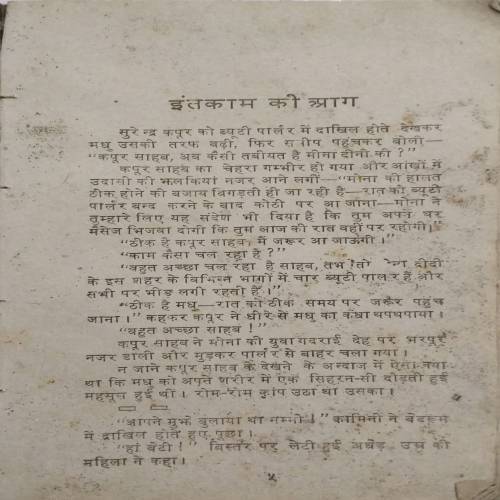 इंतकाम की आग
सुरेन्द्र कपूर को ब्यूटी पार्लर में दाखिल होते देखकर
मधु उसकी तरफ बढ़ी, फिर समीप पहुंचकर बोली—
“कपूर साहब, अब कैसी तबीयत है मीना दीदी की ?”
कपूर साहब का चेहरा गम्भीर हो गया और आंखों में
उदासी की झलकियां नजर आने लगीं—“मीना की हालत
ठीक होने की बजाय बिगड़ती ही जा रही है—रात को ब्यूटी
पार्लर बन्द करने के बाद कोठी पर आ जाना—मीना ने
तुम्हारे लिए यह संदेश भी दिया है कि तुम अपने घर
मैसेज भिजवा दोगी कि तुम आज की रात वहीं पर रहोगी।”
“ठीक है कपूर साहब, मैं जरूर आ जाऊंगी।”
“काम कैसा चल रहा है ?”
“बहुत अच्छा चल रहा है साहब, तभी तो दीदी
के इस शहर के विभिन्न भागों में चार ब्यूटी पार्लर हैं और
सभी पर भीड़ लगी रहती है।”
“ठीक है मधु—रात को ठीक समय पर जरूर पहुंच
जाना।” कहकर कपूर ने धीरे से मधु का कंधा थपथपाया।
“बहुत अच्छा साहब !”
कपूर साहब ने मीना की युवा गदराई देह पर भरपूर
नजर डाली और मुड़कर पार्लर से बाहर चला गया।
न जाने कपूर साहब के देखने के अन्दाज में ऐसा क्या
था कि मधु को अपने शरीर में एक सिहरन-सी दौड़ती हुई
महसूस हुई थी। रोम-रोम कांप उठा था उसका।
“आपने मुझे बुलाया था मम्मी !” कामिनी ने बेडरूम
में दाखिल होते हुए पूछा।
“हां बेटी !” बिस्तर पर लेटी हुई अधेड़ उम्र की
महिला ने कहा।
५